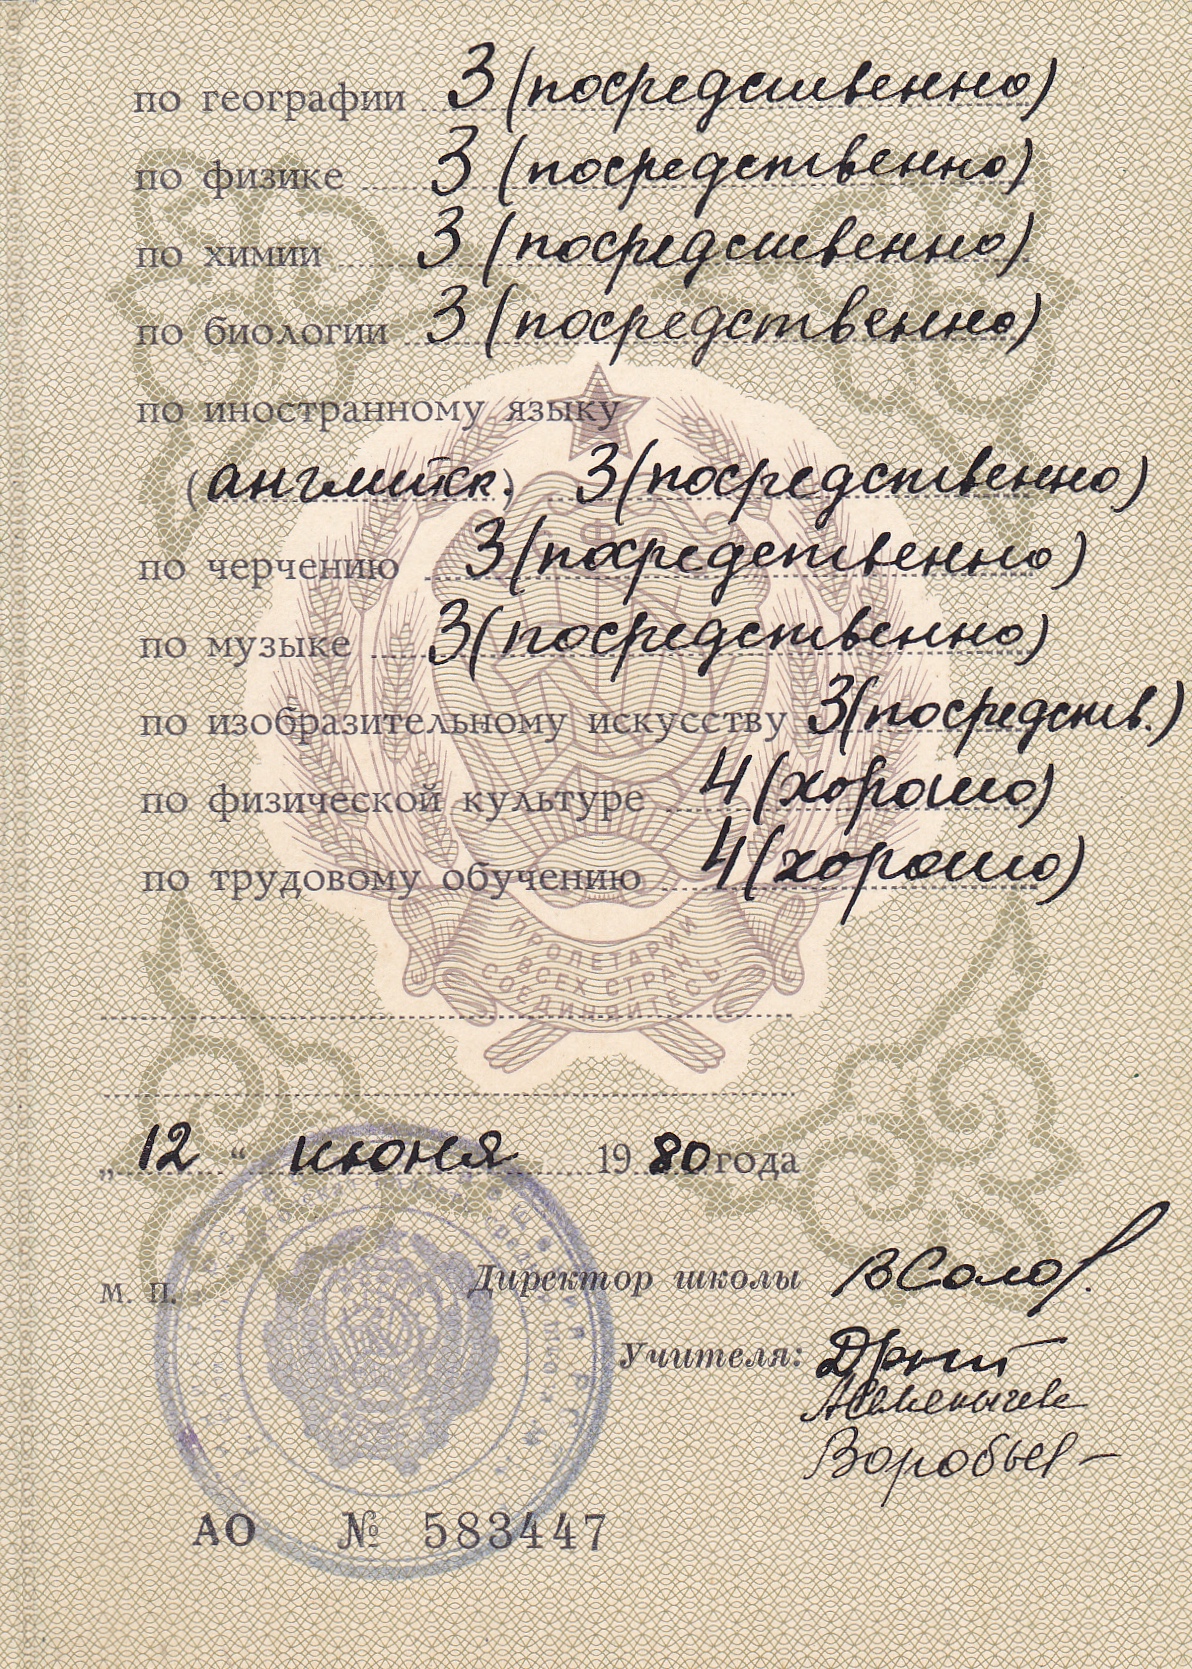 по географии 3 (посредственно)
по физике 3 (посредственно)
по химии 3 (посредственно)
по биологии 3 (посредственно)
по иностранному языку
(английск.) 3 (посредственно)
по черчению 3 (посредственно)
по музыке 3 (посредственно)
по изобразительному искусству 3 (посредств.)
по физической культуре 4 (хорошо)
по трудовому обучению 4 (хорошо)
ПРОЛЕТАРИИ
ВСЕХ СТРАН,
СОЕДИНЯЙТЕСЬ!
„12“ июня 1980 года
М. П.
Директор школы
Учителя:
АО № 583447